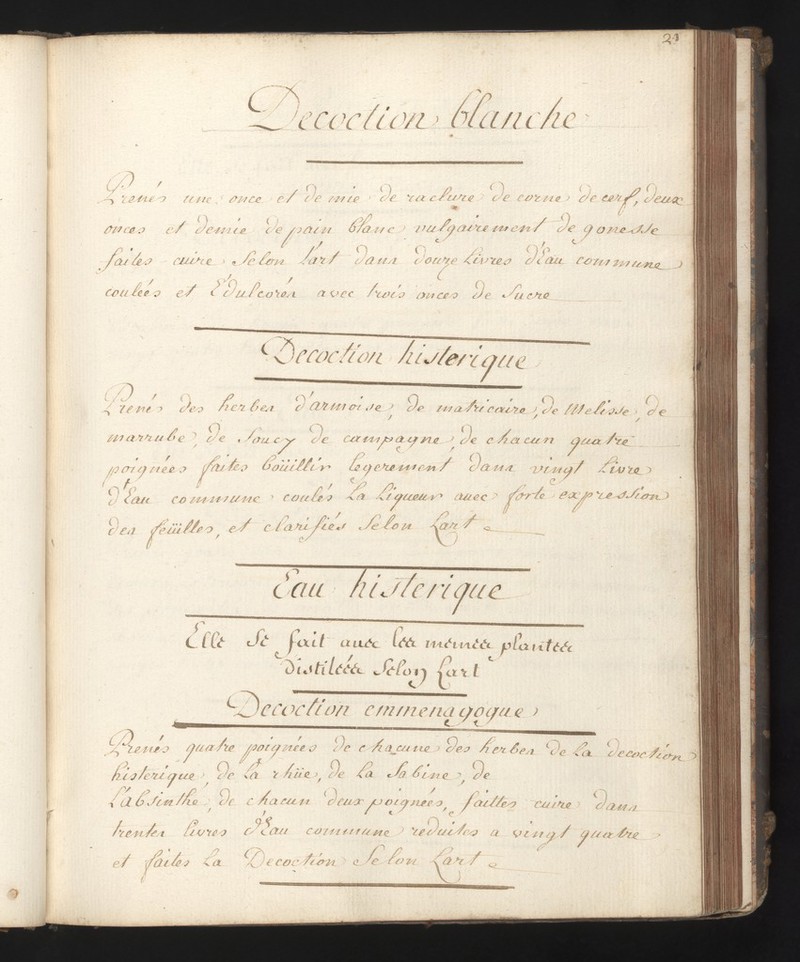 21
Decoction blanche
Prenés une once et demie de raclure de corne de cerf, deux
onces et demie de pain blanc vulgairement de gonesse
faites cuire selon l'art dans douze Livres d'Eau commune
coulées et Édulcorés avec trois onces de Sucre
Decoction histerique
Prenés des herbes d'armoise, de matricaire, de Melisse, de
marrube, de Soucy de campagne, de chacun quatre
poignées faites boüillir legerement dans vingt Livre
d'Eau commune coulés La Liqueur avec forte expression
des feüilles, et clarifiés Selon Lart
Eau histerique
Elle Se fait avec les mêmes plantes
distilées Selon Lart
Decoction emmenagogue
Prenés quatre poignées de chacune des herbes de La decoction
histerique, de La rhüe, de La Sabine, de
L'absinthe, de chacun deux poignées, faittes cuire dans
trentes livres d'Eau commune reduites a vingt quatre
et faites La Decoction Selon Lart